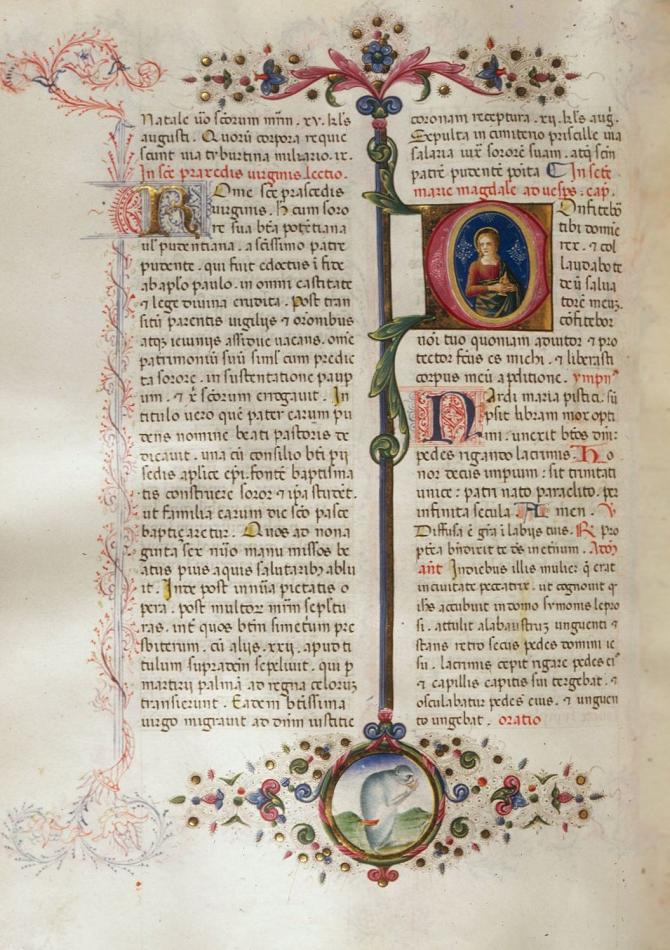 Natale vᵒ scorum mrm . xv . kls
augusti . Quorū corpora requie
scunt via tyburtina miliario . ix .
In scē praxedis virginis lectio .
Rome scē praxedis
virginis . h̄ cum soro
re sua bt̄a potētiana
ul' pudentiana . a scīssimo patre
pudente . qui fuit edoctus ī fide
ab aplo paulo . in omni castitate
⁊ lege divina erudita . Post tran
sitū parentis vigilijs ⁊ orōnibus
atq3 ieiunijs assidue vacans . omē
patrimoniū suū siml' cum predic
ta sorore . in sustentatione paup
um . ⁊ scōrum erogavit . In
titulo vero quē pater earum pu
dens nomine beati pastoris de
dicavit . una cū consilio bti pij
sedis aplice epi . fontē baptisma
tis construere soror ⁊ ipa studēt .
ut familia earum die scō pasce
baptiçaretur . Quos ad nona
ginta sex nūo manu missos be
atus pius aquis salutaribꝫ ablu
it . Inde post innūa pietatis o
pera . post multorꝫ mrm sepltu
ras . int̄ quos btm simetrum pre
sbiterum . cū alijs . xxij . apud ti
tulum supradcm sepelivit . qui p
martirij palmā ad regna celorū
transierunt . Eadem btissima
virgo migravit ad dnm iustitie
coronam receptura . xij . kls aug̃ .
Sepulta in cimiterio priscille via
salaria iux̄ sororē suam . atq3 scm
patrē pudentē posita In scē
marie magdalē ad vesps . cap .
Onfitebor
tibi domie
rex . ⁊ col
laudabo te
deū salva
torē meuꝫ .
cōfitebor
noī tuo quoniam adiutor ⁊ pro
tector fcūs es michi . ⁊ liberasti
corpus meū a pditione . ympnꝰ
Nardi maria pistici . sū
psit libram mox opti
mi . unxit btos dnī
pedes rigando lacrimis . Ho
nor decus imperium : sit trinitati
unice : patri nato paraclito . per
infinita secula . Amen . ℣
Diffusa ē grā ī labijs tuis . ℟ pro
pterea bn̄dixit te dēs in etnum . Ad mͬ
ant In diebus illis mulier q̄ erat
in civitate peccatrix . ut cognovit qͬ
ihs accubuit in domo symonis lepro
si . attulit alabaustrꝫ unguenti ⁊
stans retro secus pedes domini ie
su . lacrimis cepit rigare pedes eiꝰ
⁊ capillis capitis sui tergebat . ⁊
osculabatur pedes eius . ⁊ unguen
to ungebat . oratio